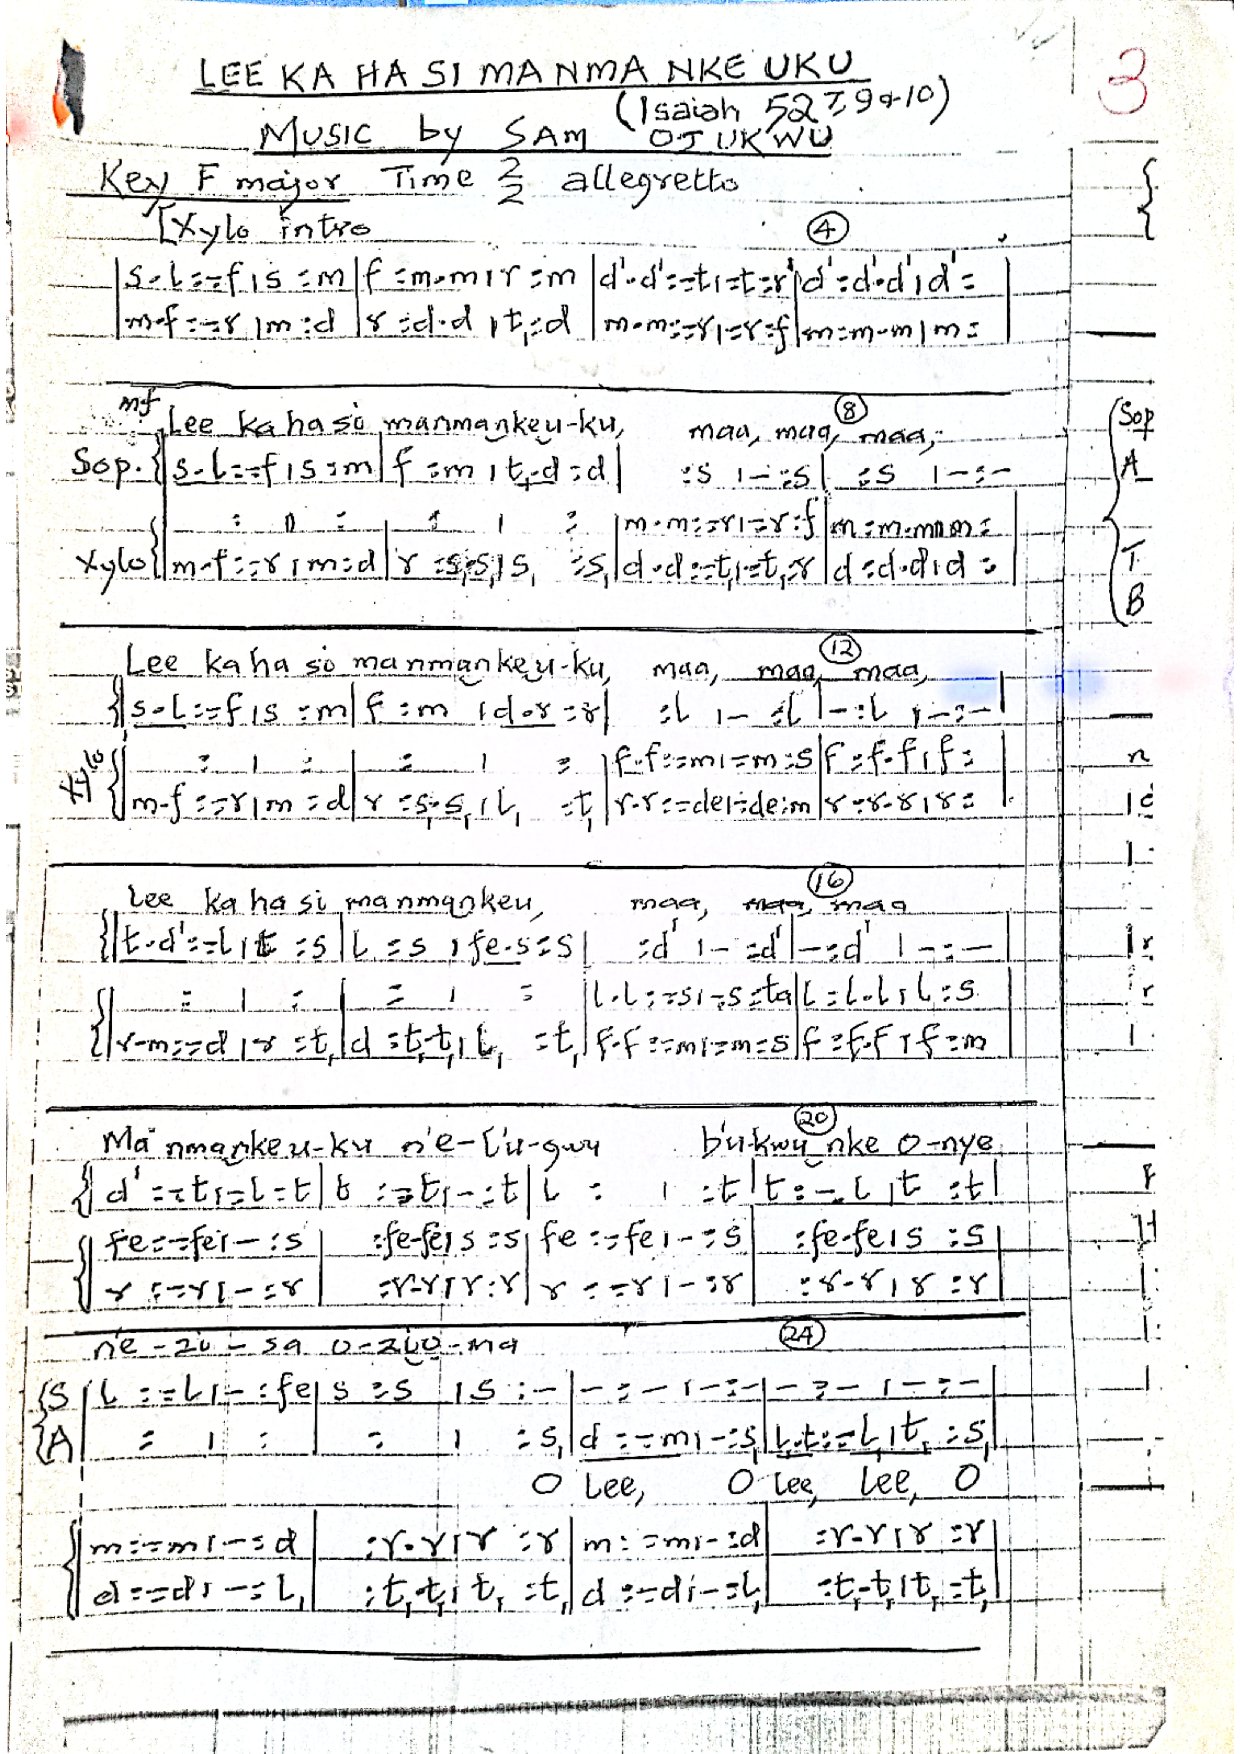 LEE KA HA SI MANMA NKE UKU
3
(Isaiah 52 7,9&10)
MUSIC by SAM OJUKWU
Key F major Time 2/2 allegretto
[Xylo intro
4
|s.l:-.f|s :m|f :m.m|r :m|d'.d':-.t|-.t:r'|d':d'.d'|d':
|m.f:-.r|m:d|r :d.d|t,:d|m.m:-.r|-.r:f|m:m.m|m:
mf Lee ka ha si manmankeu-ku, maa, maa, maa, 8
Sop. {|s.l:-.f|s:m|f :m|t,.d:d| :s|-:s| :s|-:-
| : | : | : | : |m.m:-.r|-.r:f|m:m.m|m:
Xylo {|m.f:-.r|m:d|r :s,.s,|s, :s,|d.d:-.t,|-.t,:r|d:d.d|d:
Sop
A
T
B
Lee ka ha si manmankeu-ku, maa, maa, maa, 12
{|s.l:-.f|s :m|f :m |d.r:r| :l|-:l|-:l|-:-|
Xylo
| : | : | : | : |f.f:-.m|-.m:s|f:f.f|f:
|m.f:-.r|m:d|r :s,.s,|l, :t,|r.r:-.de|-.de:m|r:r.r|r:|
Lee ka ha si manmankeu, maa, maa, maa 16
{|t.d':-.l|t :s|l :s |fe.s:s| :d'|-:d'|-:d'|-:-|
| : | : | : | : |l.l:-.s|-.s:ta|l:l.l|l:s
{|r.m:-.d|r:t,|d:t,.t,|l, :t,|f.f:-.m|-.m:s|f:f.f|f:m
20
Manmankeu-ku n'e-lu-gwu b'u-kwu nke o-nye
{|d':-.t|-.l:t|t :-.t|-:t|l : | :t|t:-.l|t :t|
{|fe:-.fe|-:s| :fe.fe|s:s|fe:-.fe|-:s| :fe.fe|s:s|
|r:-.r|-:r| :r.r|r:r|r:-.r|-:r| :r.r|r:r|
n'e-zi-sa o-zioma 24
{S|l:-.l|-:fe|s:s|s:-|-:-|-:-|-:-|-:-|
{A| : | : | : | :s,|d:-.m|-:s,|l,.t,:-.l,|t,:s,|
O Lee, O lee, lee, O
{|m:-.m|-:d| :r.r|r:r|m:-.m|-:d| :r.r|r:r|
|d:-.d|-:l,| :t,.t,|t,:t,|d:-.d|-:l,| :t,.t,|t,:t,|